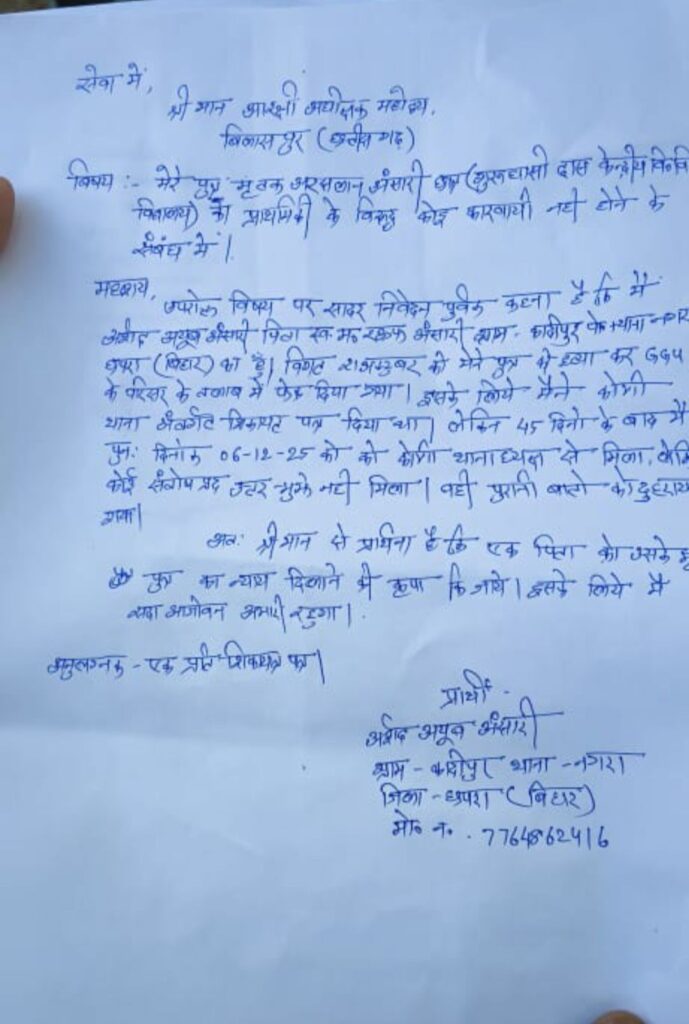 सेवा में,
श्री मान आरक्षी अधीक्षक महोदय,
बिलासपुर (छत्तीसगढ़)
विषय :- मेरे पुत्र मृतक अरसलान अंसारी छात्र (गुरू घासी दास केन्द्रीय विश्ववि
विद्यालय) का प्राथमिकी के विरूद्ध कोई कारवायी नही होने के
संबंध में।
महाशय,
उपरोक्त विषय पर सादर निवेदन पुर्वक कहना है कि मैं
अर्शद अयूब अंसारी पिता स्व मो. अंसारी ग्राम - कादीपुर थाना नगरा
छपरा (बिहार) का हूँ। विगत 21 अक्टूबर को मेरे पुत्र की हत्या कर GGU
के परिसर के तलाब में फेक दिया गया। इसके लिये मैने कोनी
थाना अंतर्गत शिकायत पत्र दिया था। लेकिन 45 दिनो के बाद मैं
पुनः दिनांक 06-12-25 को को कोनी थानाध्यक्ष से मिला, लेकि
कोई संतोष प्रद उत्तर मुझे नही मिला। वही पुरानी बातो को दुहराय
गया।
अतः श्री मान से प्रार्थना है कि एक पिता को उसके
पुत्र का न्याय दिलाने की कृपा कि जाये। इसके लिये मैं
सदा आजीवन अभारी रहुगा।
अनुलग्नक - एक प्रति शिकायत पत्र।
प्रार्थी -
अर्शद अयूब अंसारी
ग्राम - कादीपुर थाना - नगरा
जिला - छपरा (बिहार)
मो० न० . 7764862416